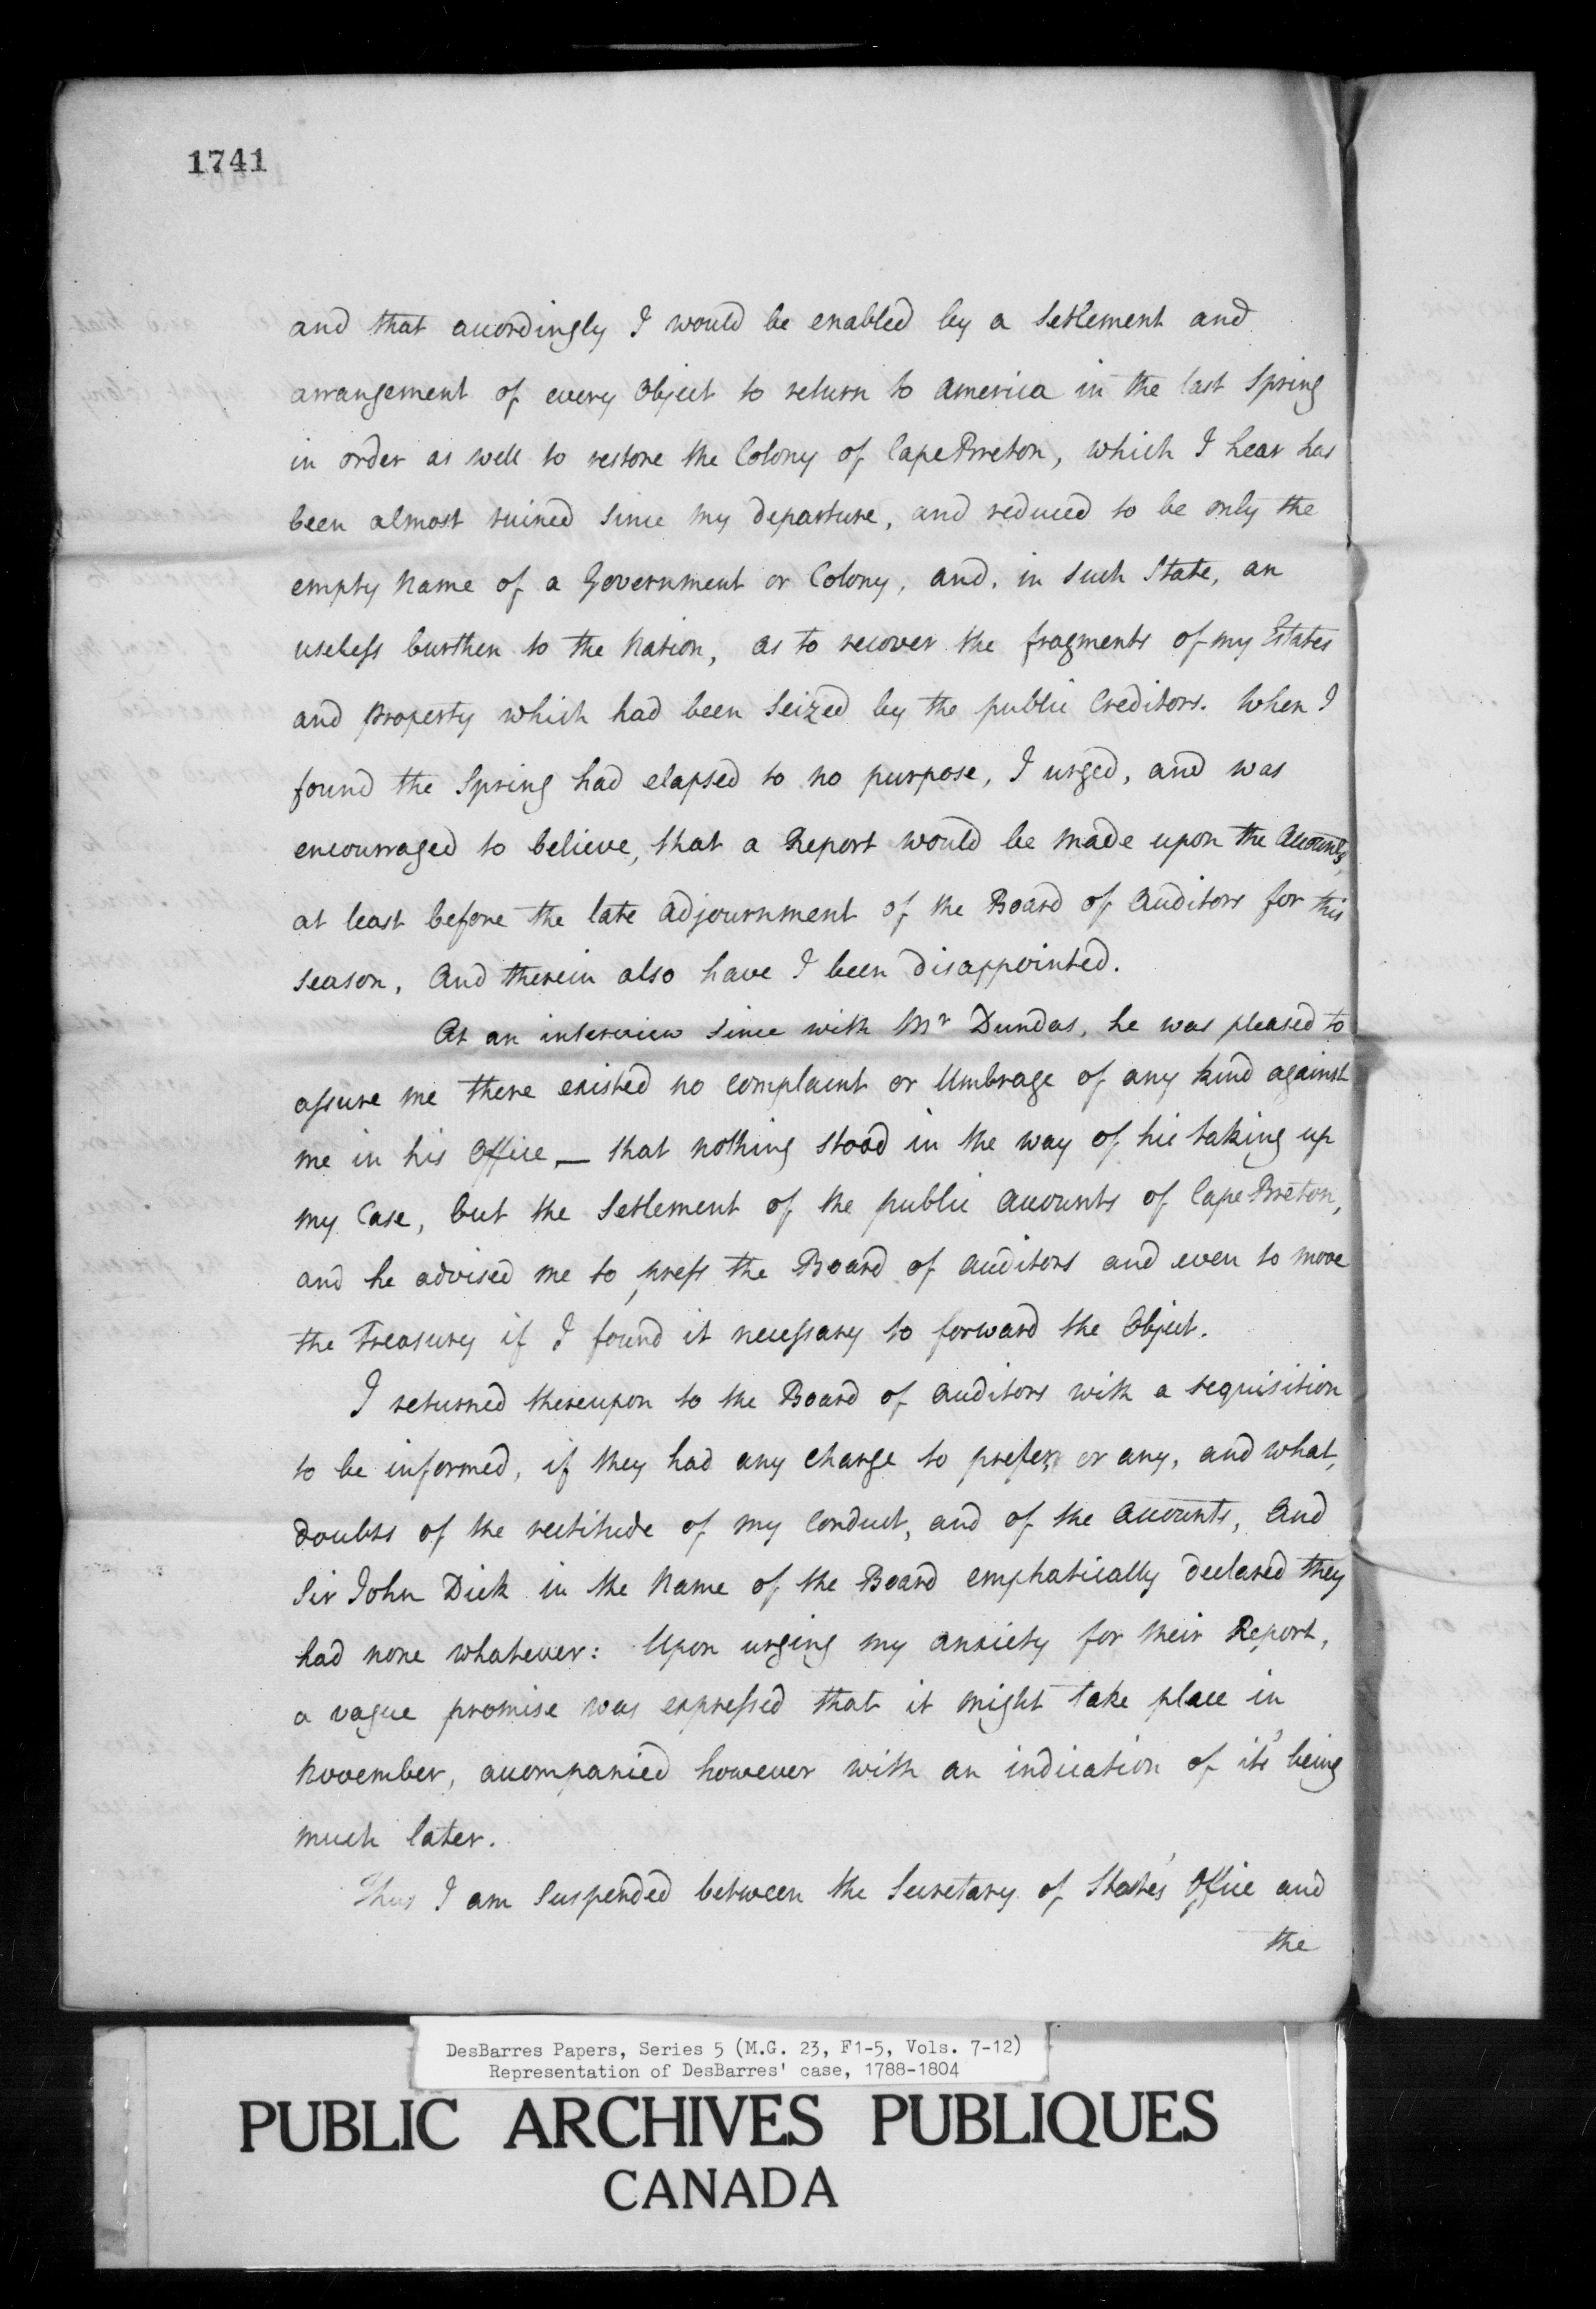 1741
and that accordingly I would be enabled by a Setlement and
arrangement of every Object to return to America in the last Spring
in order as well to restore the Colony of Cape Breton, which I hear has
been almost ruined since my departure, and reduced to be only the
empty Name of a Government or Colony, and, in such State, an
useless burthen to the Nation, as to recover the fragments of my Estates
and property which had been seized by the public Creditors. When I
found the Spring had elapsed to no purpose, I urged, and was
encourraged to believe, that a Report would be made upon the Accounts,
at least before the late Adjournment of the Board of Auditors for this
season, And therein also have I been disappointed.
At an interview since with Mr Dundas, he was pleased to
assure me there existed no complaint or Umbrage of any kind against
me in his Office, — that nothing stood in the way of his taking up
my Case, but the Setlement of the public Accounts of Cape Breton,
and he advised me to press the Board of Auditors and even to move
the Treasury if I found it necessary to forward the Object.
I returned thereupon to the Board of Auditors with a requisition
to be informed, if they had any charge to prefer, or any, and what,
doubts of the rectitude of my Conduct, and of the Accounts, And
Sir John Dick in the Name of the Board emphatically declared they
had none whatever: Upon urging my anxiety for their Report,
a vague promise was expressed that it might take place in
November, accompanied however with an indication of it's being
much later.
Thus I am suspended between the Secretary of State's Office and
the
DesBarres Papers, Series 5 (M.G. 23, F1-5, Vols. 7-12)
Representation of DesBarres' case, 1788-1804
PUBLIC ARCHIVES PUBLIQUES
CANADA